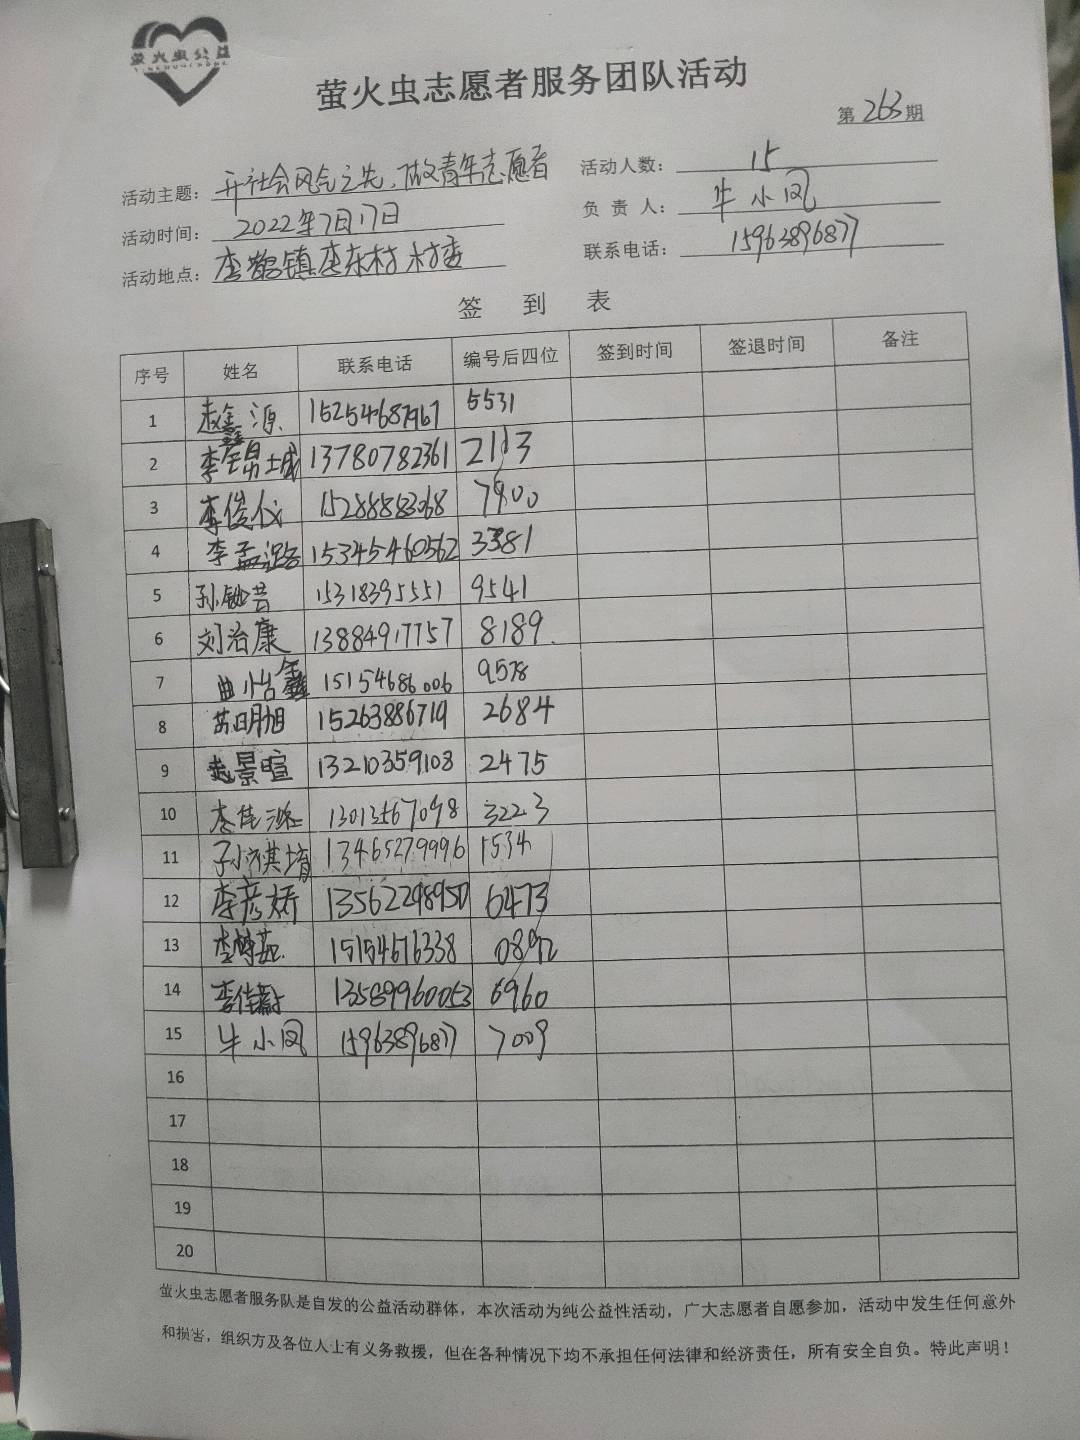 萤火虫公益
萤火虫志愿者服务团队活动
第263期
活动主题：开社会风气之先，做青年志愿者 活动人数：15
活动时间：2022年7月17日 负 责 人：牛小凤
活动地点：李鹊镇李东村村委 联系电话：15963896877
签 到 表
序号 姓名 联系电话 编号后四位 签到时间 签退时间 备注
1 赵鑫源 15254687967 5531
2 李锦城 13780782361 2113
3 李俊仪 15288883068 7900
4 李孟潞 15345460562 3381
5 孙 15318395551 9541
6 刘治康 13884917757 8189
7 曲怡鑫 15154686006 9578
8 苏明旭 15263886719 2684
9 赵景暄 13210359108 2475
10 李佳 13013567098 3223
11 孙祺堉 13465279996 1534
12 李彦娇 13562298950 6473
13 李 15154676338 0892
14 李佳蔚 13589960053 6960
15 牛小凤 15963896877 7009
16
17
18
19
20
萤火虫志愿者服务队是自发的公益活动群体，本次活动为纯公益性活动，广大志愿者自愿参加，活动中发生任何意外
和损害，组织方及各位人士有义务救援，但在各种情况下均不承担任何法律和经济责任，所有安全自负。特此声明！